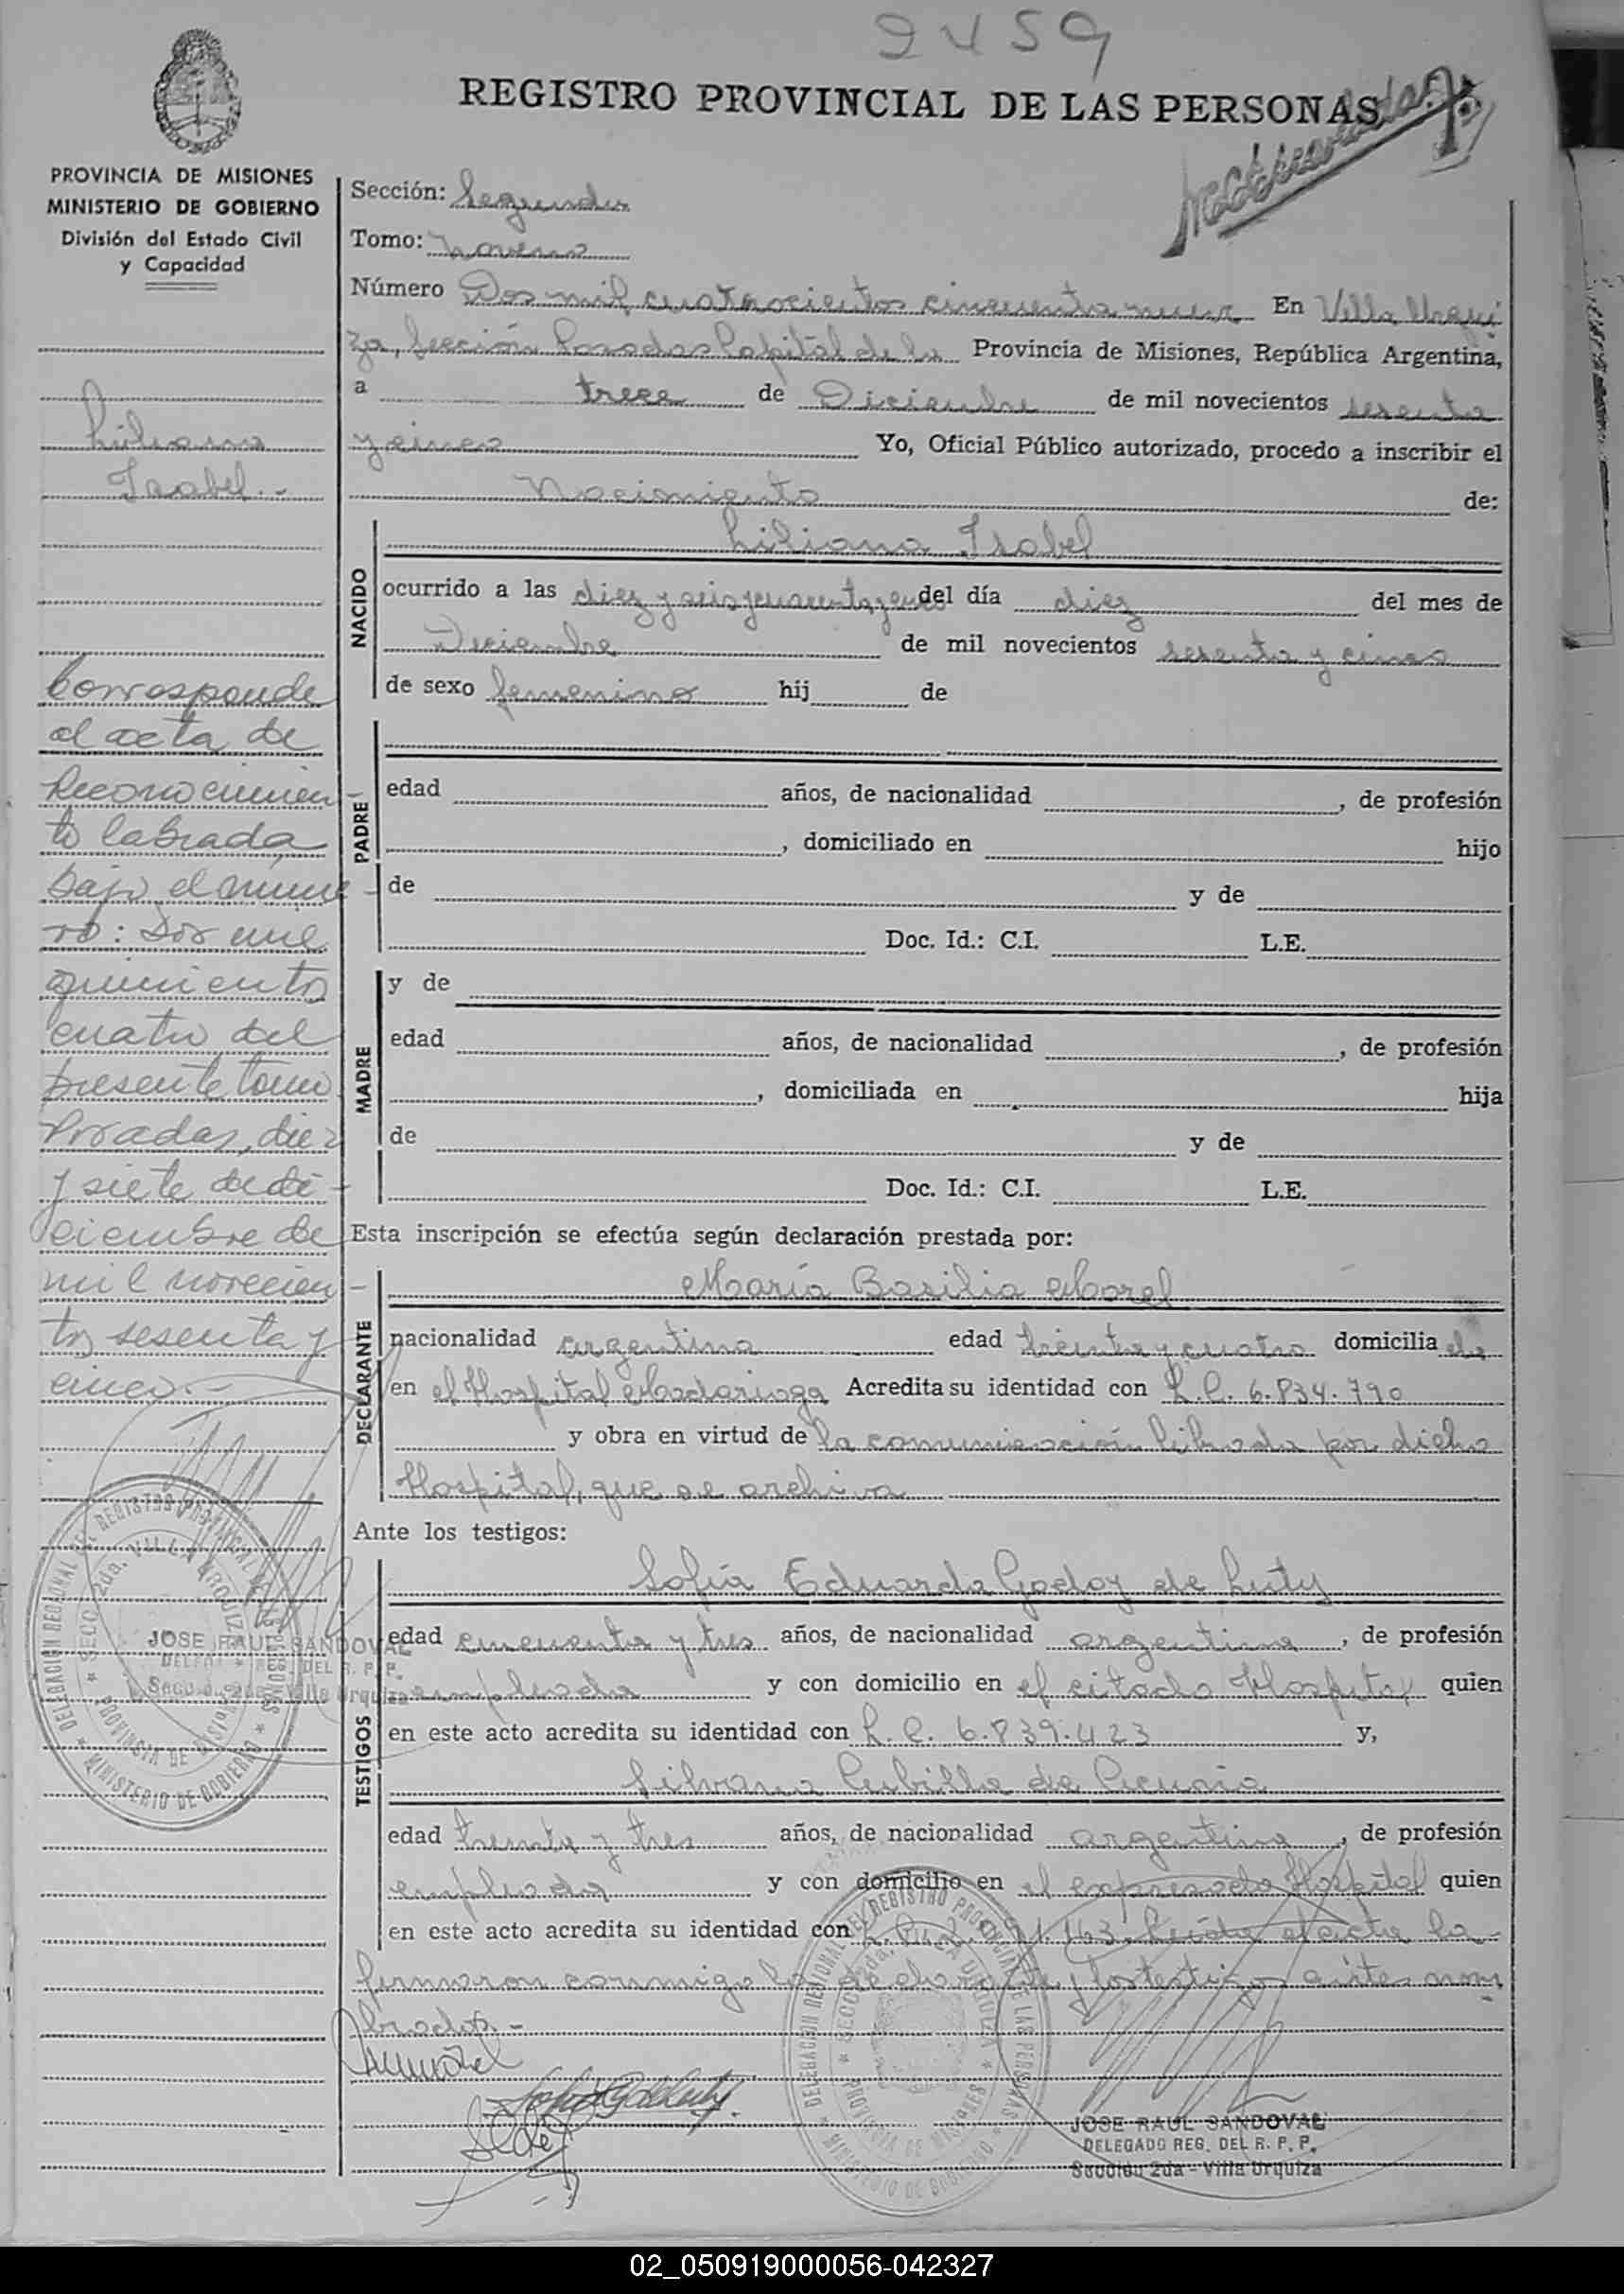 2459
REGISTRO PROVINCIAL DE LAS PERSONAS
PROVINCIA DE MISIONES
MINISTERIO DE GOBIERNO
División del Estado Civil
y Capacidad
Liliana
Isabel.-
Corresponde
al acta de
Reconocimien-
to labrada
bajo el núme-
ro: Dos mil
quinientos
cuatro del
presente tomo
Posadas, diez
y siete de di-
ciembre de
mil novecien-
tos sesenta y
cinco.-
DELEGACION REGIONAL DEL REGISTRO PROVINCIAL DE LAS PERSONAS
SECC. 2da. VILLA URQUIZA
PROVINCIA DE MISIONES
MINISTERIO DE GOBIERNO
JOSE RAUL SANDOVAL
DELEGADO REG. DEL R. P. P.
Sección 2da - Villa Urquiza
Sección: Segunda
Tomo: Noveno
Número Dos mil cuatrocientos cincuenta nueve En Villa Urqui
za, Sección Posadas Capital de la Provincia de Misiones, República Argentina,
a trece de Diciembre de mil novecientos sesenta
y cinco Yo, Oficial Público autorizado, procedo a inscribir el
Nacimiento de:
NACIDO
Liliana Isabel
ocurrido a las diez y seis y cuarenta y cinco del día diez del mes de
Diciembre de mil novecientos sesenta y cinco
de sexo femenino hij de
PADRE
edad años, de nacionalidad , de profesión
, domiciliado en hijo
de y de
Doc. Id.: C.I. L.E.
MADRE
y de
edad años, de nacionalidad , de profesión
, domiciliada en hija
de y de
Doc. Id.: C.I. L.E.
Esta inscripción se efectúa según declaración prestada por:
DECLARANTE
María Basilia Morel
nacionalidad argentina edad treinta y cuatro domicilia da
en el Hospital Madariaga Acredita su identidad con L.C. 6.834.790
y obra en virtud de la comunicación librada por dicho
Hospital, que se archiva
Ante los testigos:
TESTIGOS
Sofía Eduarda Godoy de Luty
edad cincuenta y tres años, de nacionalidad argentina, de profesión
empleada y con domicilio en el citado Hospital quien
en este acto acredita su identidad con L. C. 6.839.423 y,
Silvana de Acuña
edad treinta y tres años, de nacionalidad argentina, de profesión
empleada y con domicilio en el expresado Hospital quien
en este acto acredita su identidad con Leída el acta la
firmaron conmigo la declarante y los testigos antes nom
brados.-
DELEGACION REGIONAL DEL REGISTRO PROVINCIAL DE LAS PERSONAS
SECC. 2da. VILLA URQUIZA
PROVINCIA DE MISIONES
MINISTERIO DE GOBIERNO
JOSE RAUL SANDOVAL
DELEGADO REG. DEL R. P. P.
Sección 2da - Villa Urquiza
02_050919000056-042327